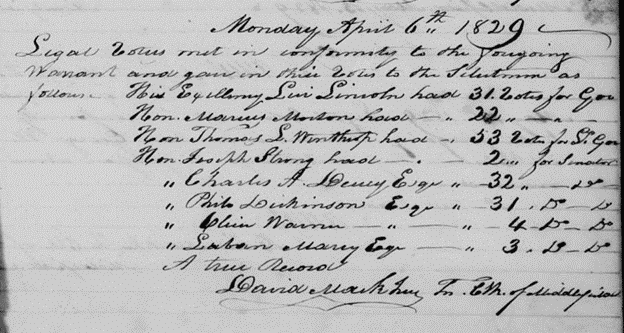 Monday April 6th 1829
Legal Voters met in conformity to the foregoing
Warrant and gave in their Votes to the Selectmen as
follows. His Excellency Levi Lincoln had 31 Votes for Gov
Hon. Marcus Morton had — „ 22 „ — „
Hon Thomas L. Winthrop had „ 53 Votes for Lt. Gov
Hon. Joseph Strong had — . 2 „ for Senator
„ Charles A. Dewey Esqr „ 32 „ — Do
„ Philo Dickinson Esqr „ 31. Do — Do
„ Oliver Warner — „ 4 Do — Do
„ Laban Marcy Esqr — „ 3. Do — Do
A true Record
David Mack Jur Tn. Clk. of Middlefield